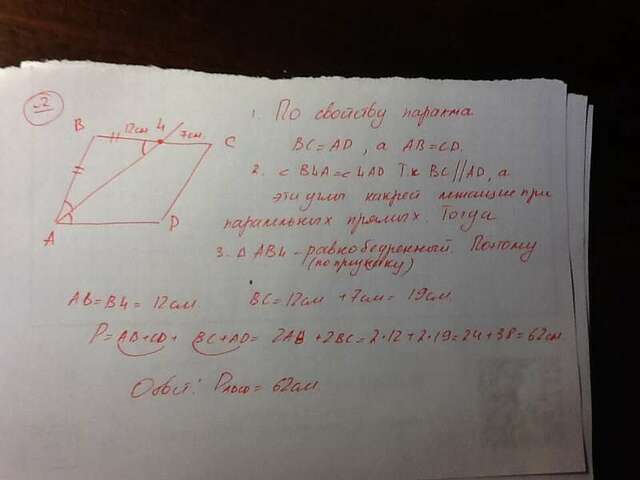 №2
B 12см 4 7см C
A D
1. По свойству паралма
BC=AD, а AB=CD.
2. < B4A=<4AD Т.к BC||AD, а
эти углы накрей лежащие при
паралельных прямых. Тогда
3. Δ AB4 - равнобедренный. Поэтому
(по признаку)
AB=B4= 12см. BC=12см +7см= 19см.
P=AB+CD+ BC+AD= 2AB +2BC=2·12+2·19=24+38=62см.
Ответ: P = 62см